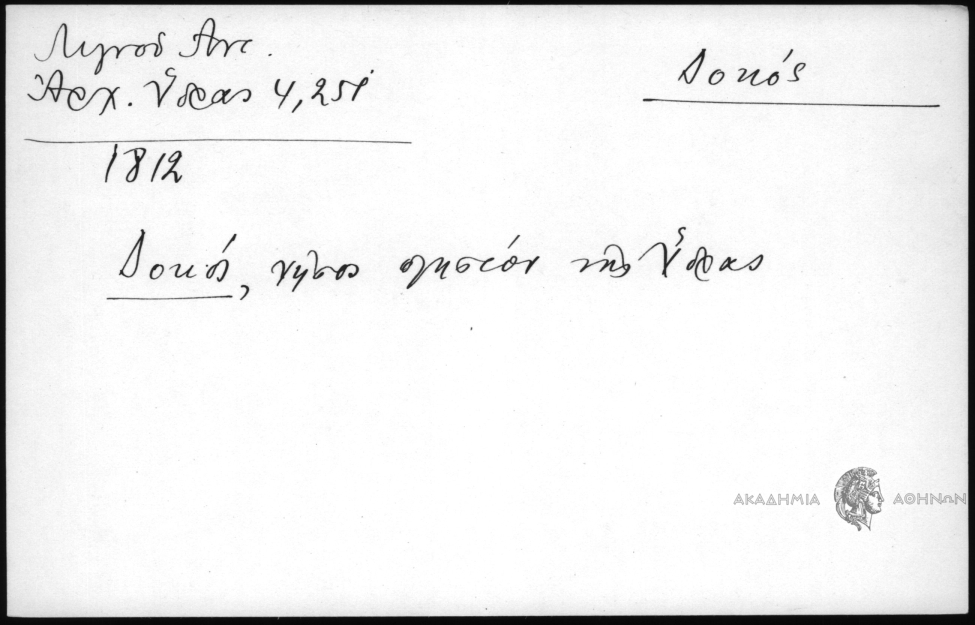 Λιγνοῦ Ἀντ.
Ἀρχ. Ὕδρας 4,251
Δοκός
1812
Δοκός, νῆσος πλησίον τῆς Ὕδρας
ΑΚΑΔΗΜΙΑ ΑΘΗΝΩΝ